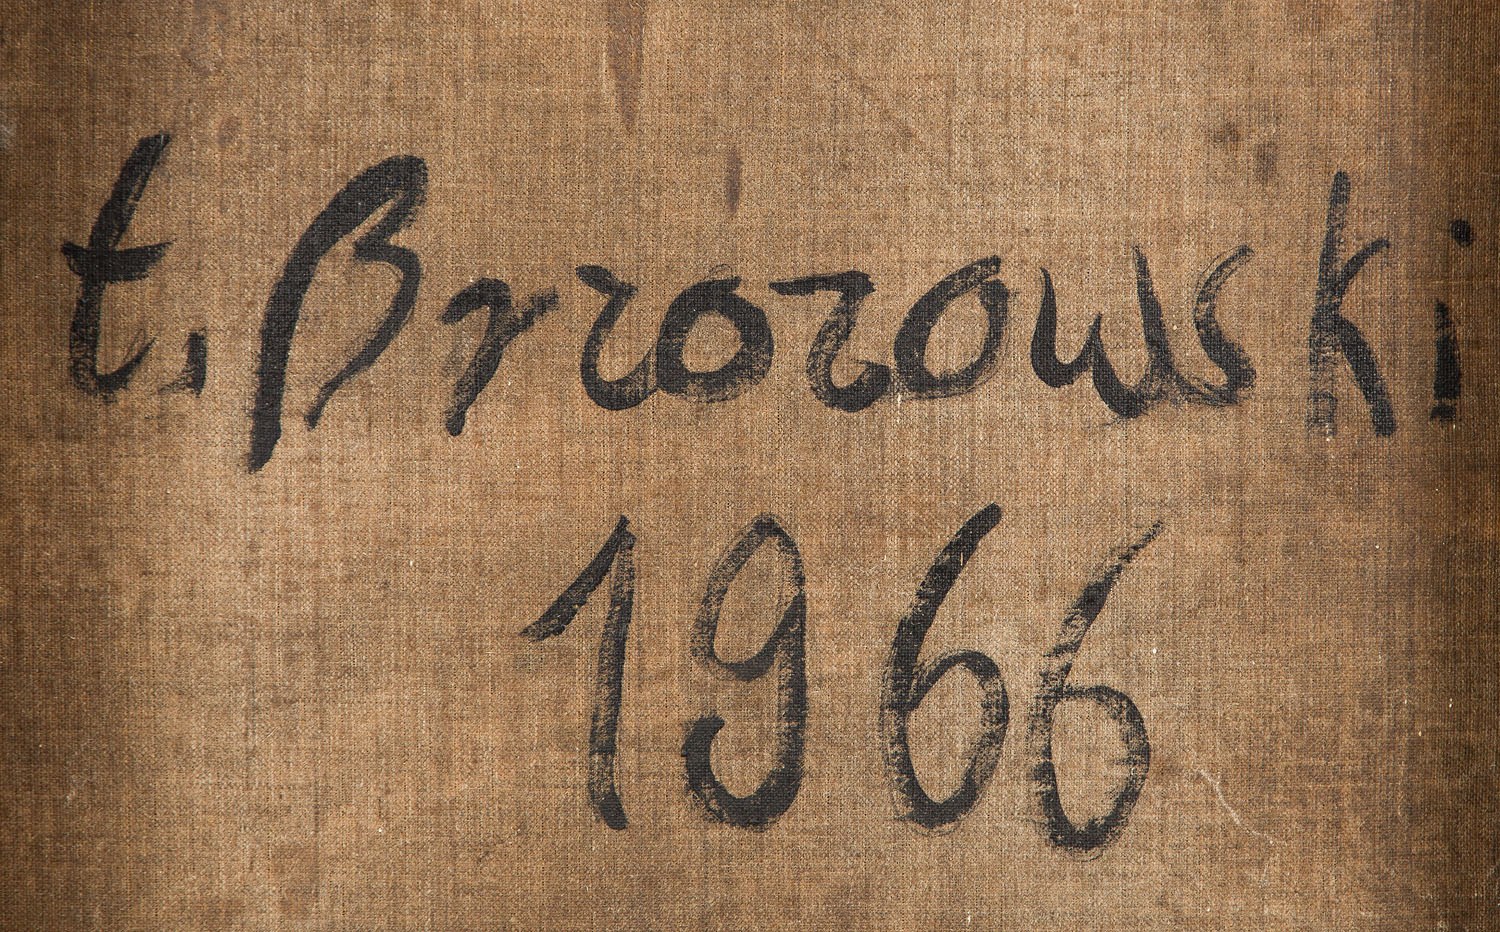 t. Brzozowski
1966